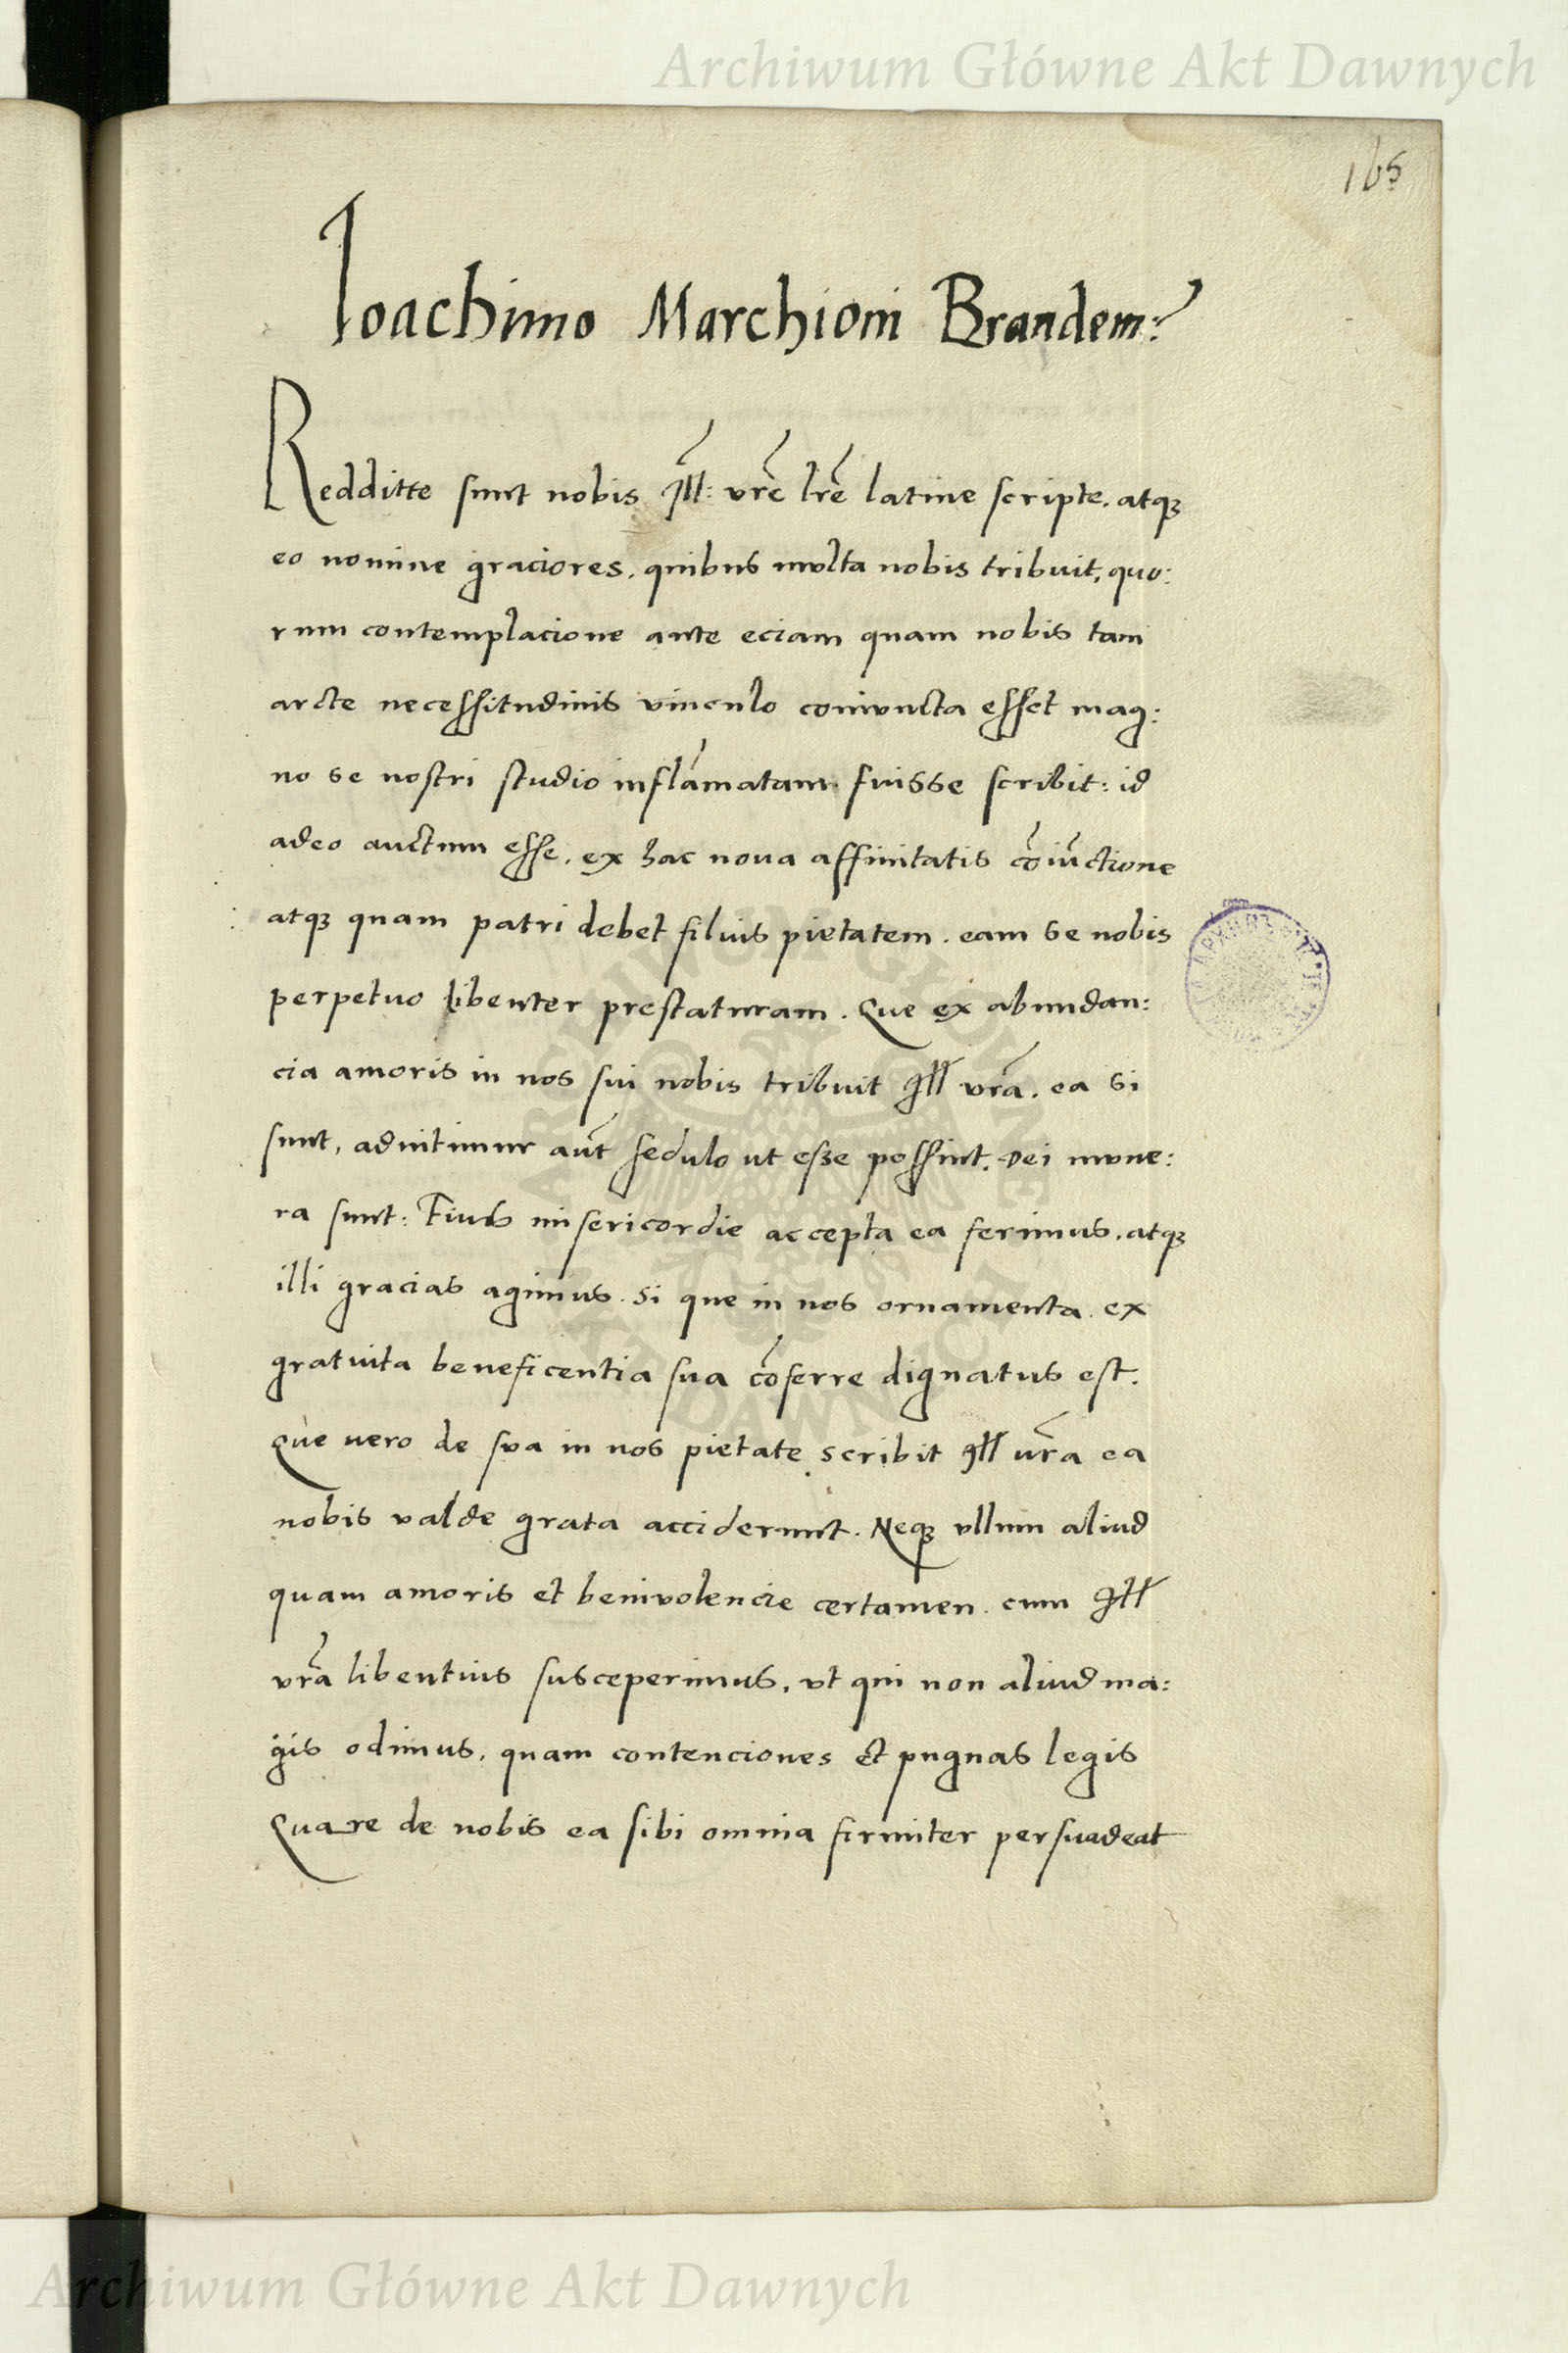 Archiwum Główne Akt Dawnych
165
Ioachimo Marchioni Brandem:
Redditte sunt nobis Ill: vr̃e lr̃e latine scripte. atqꝫ
eo nomine graciores. quibus multa nobis tribuit, quo:
rum contemplacione ante eciam quam nobis tam
arcte necessitudinis vinculo coniuncta esset mag:
no se nostri studio inflāmatam fuisse scribit: id
adeo auctum esse. ex hac noua affinitatis cōiūctione
atqꝫ quam patri debet filius pietatem. eam se nobis
perpetuo libenter prestaturam. Que ex abundan:
cia amoris in nos sui nobis tribuit Ill vr̃a. ea si
sunt, adnitimur aūt sedulo ut esse possint. Dei mune:
ra sunt: Eius misericordie accepta ea ferimus. atqꝫ
illi gracias agimus. Si que in nos ornamenta. ex
gratuita beneficentia sua cōferre dignatus est.
Que uero de sua in nos pietate scribit Ill ur̃a ea
nobis valde grata acciderunt. Neqꝫ vllum aliud
quam amoris et beniuolencie certamen. cum Ill
vr̃a libentius susceperimus. vt qui non aliud ma:
gis odimus. quam contenciones et pugnas legis
Quare de nobis ea sibi omnia firmiter persuadeat
ARCHIWUM GŁÓWNE
AKT DAWNYCH
Archiwum Główne Akt Dawnych